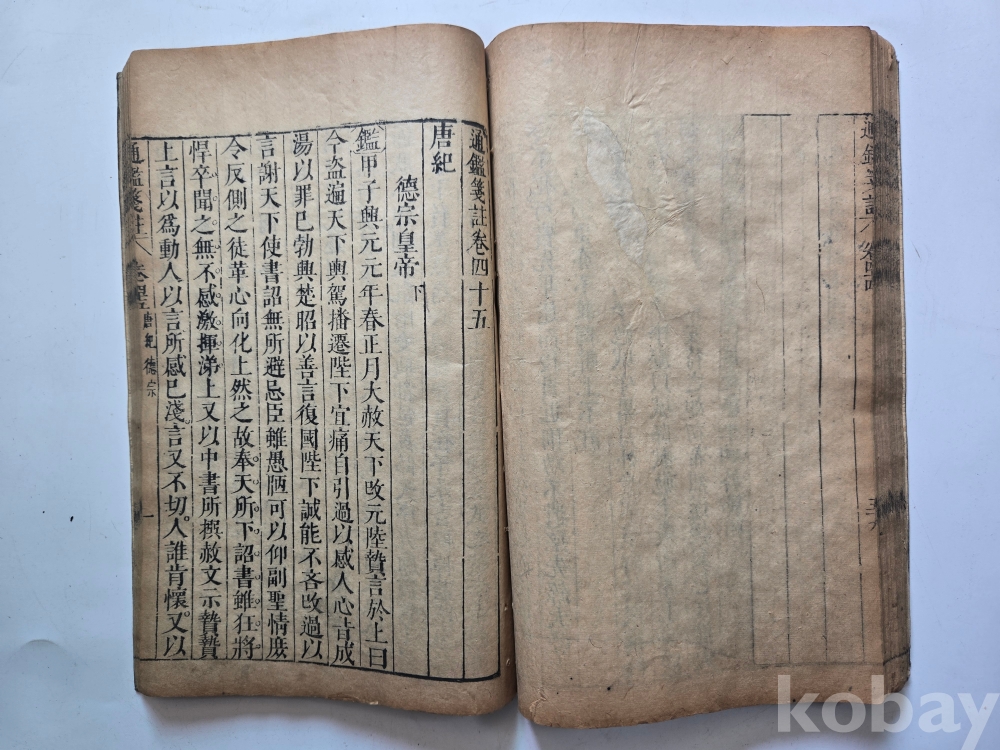 通鑑箋註卷四十五
唐紀
德宗皇帝下
鑑甲子興元元年春正月大赦天下改元陸贄言於上曰
今盜遍天下輿駕播遷陛下宜痛自引過以感人心昔成
湯以罪已勃興楚昭以善言復國陛下誠能不吝改過以
言謝天下使書詔無所避忌臣雖愚陋可以仰副聖情庶
令反側之徒革心向化上然之故奉天所下詔書雖狂將
悍卒聞之無不感激揮涕上又以中書所撰赦文示贄贄
上言以爲動人以言所感已淺言又不切人誰肯懷又以
通鑑箋註 卷 唐紀德宗 一
通鑑箋註 卷
kobay